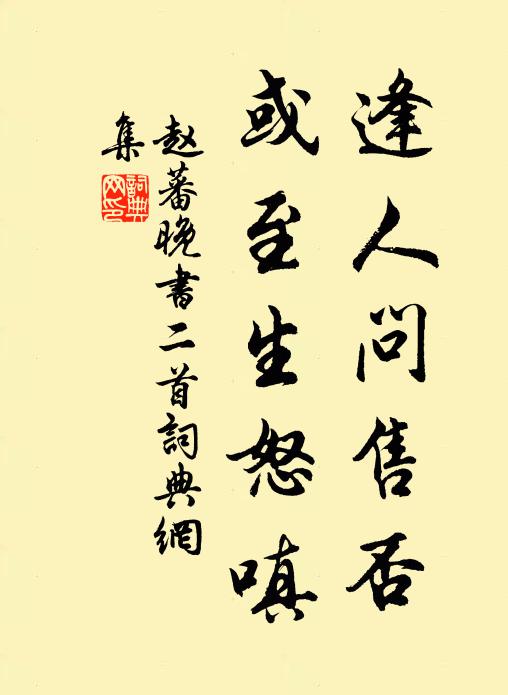 逢人问售否
或至生怒嗔
赵蕃晚书二首词典網
集
詞典網印